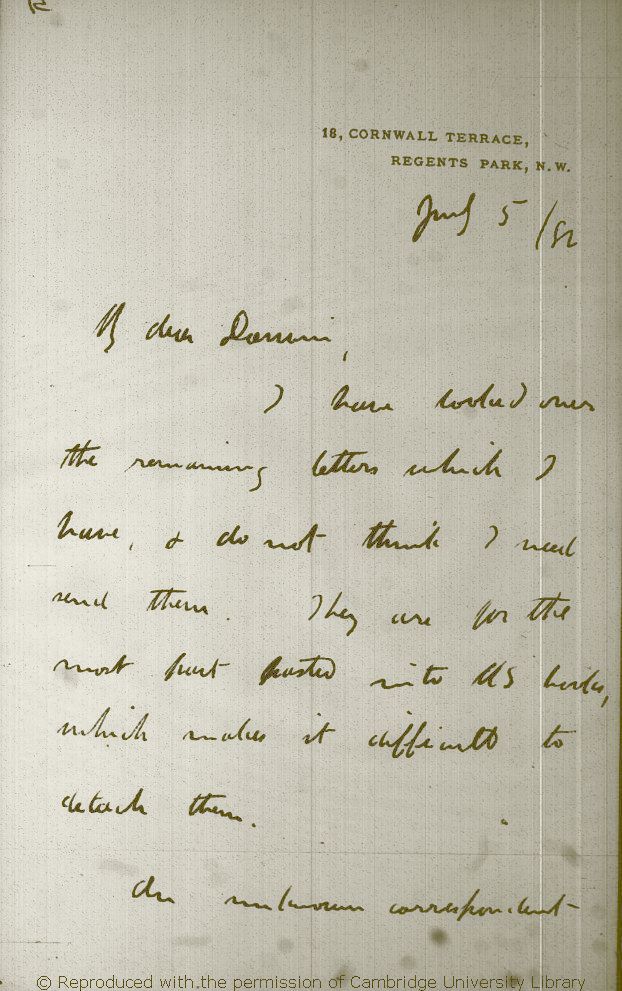 18, CORNWALL TERRACE,
REGENTS PARK, N.W.
5/82
My dear Darwin,
I have looked over
the remaining letters which I
have, & do not think I need
send them. They are for the
most part pasted into MS books,
which makes it difficult to
detach them.
An unknown correspondent
© Reproduced with the permission of Cambridge University Library